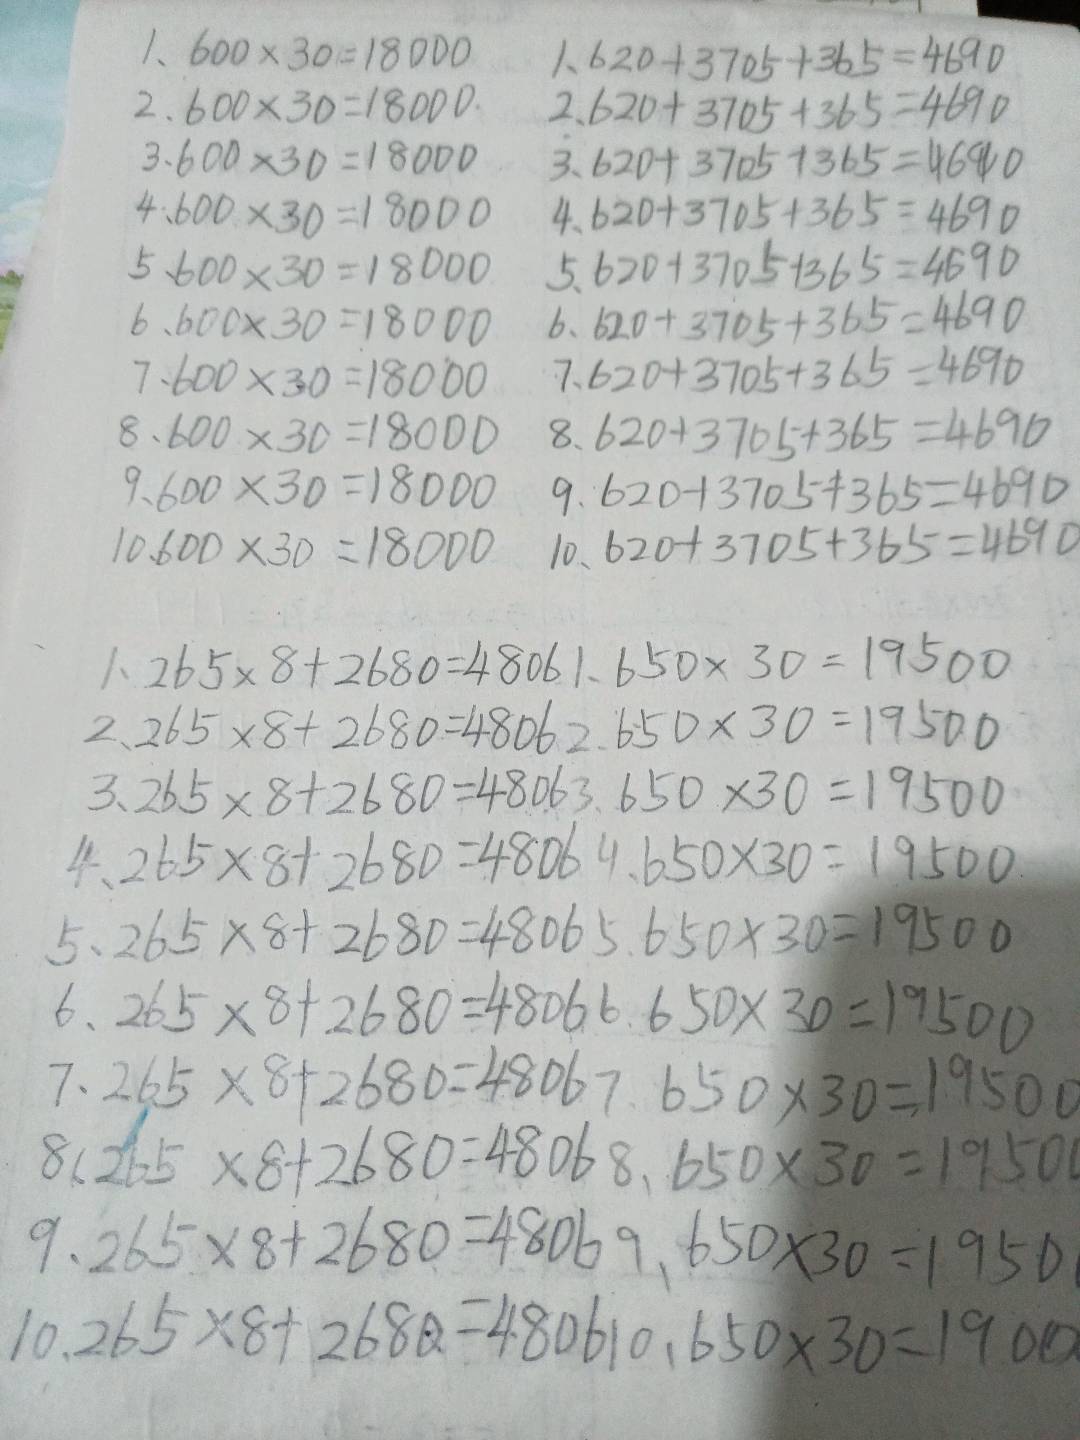 1、600×30=18000 1、620+3705+365=4690
2.600×30=18000. 2.620+3705+365=4690
3.600×30=18000 3.620+3705+365=4690
4.600×30=18000 4.620+3705+365=4690
5.600×30=18000 5.620+3705+365=4690
6.600×30=18000 6.620+3705+365=4690
7.600×30=18000 7.620+3705+365=4690
8.600×30=18000 8.620+3705+365=4690
9.600×30=18000 9.620+3705+365=4690
10.600×30=18000 10、620+3705+365=4690
1、265×8+2680=4806 1、650×30=19500
2、265×8+2680=4806 2.650×30=19500
3、265×8+2680=4806 3.650×30=19500
4、265×8+2680=4806 4.650×30=19500
5、265×8+2680=4806 5.650×30=19500
6、265×8+2680=4806 6.650×30=19500
7.265×8+2680=4806 7.650×30=19500
8.265×8+2680=4806 8、650×30=19500
9.265×8+2680=4806 9、650×30=1950
10.265×8+2680=4806 10、650×30=1900